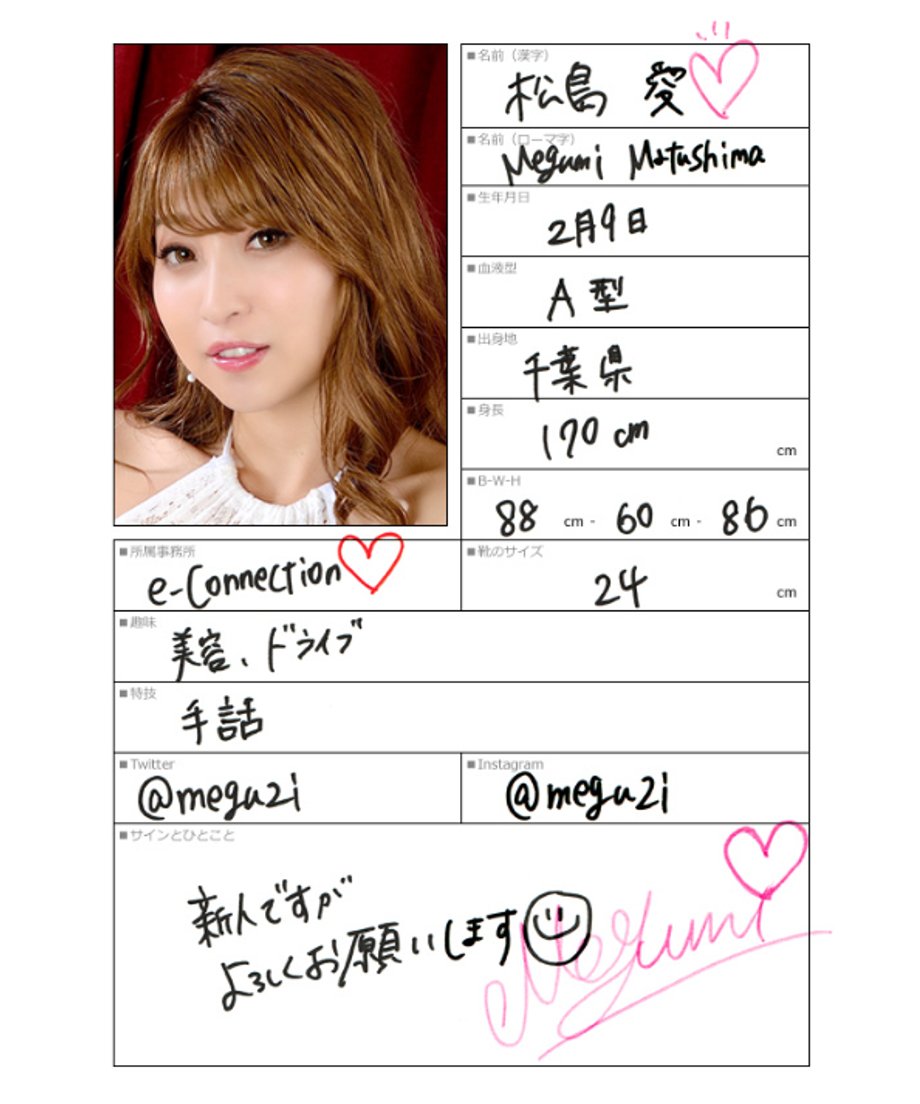 ■名前（漢字）
松島 愛
■名前（ローマ字）
Megumi Matushima
■生年月日
2月9日
■血液型
A型
■出身地
千葉県
■身長
170cm cm
■B-W-H
88 cm - 60 cm - 86 cm
■所属事務所
e-Connection
■靴のサイズ
24 cm
■趣味
美容、ドライブ
■特技
手話
■Twitter
@megu2i
■Instagram
@megu2i
■サインとひとこと
新人ですが
よろしくお願いします
Megumi